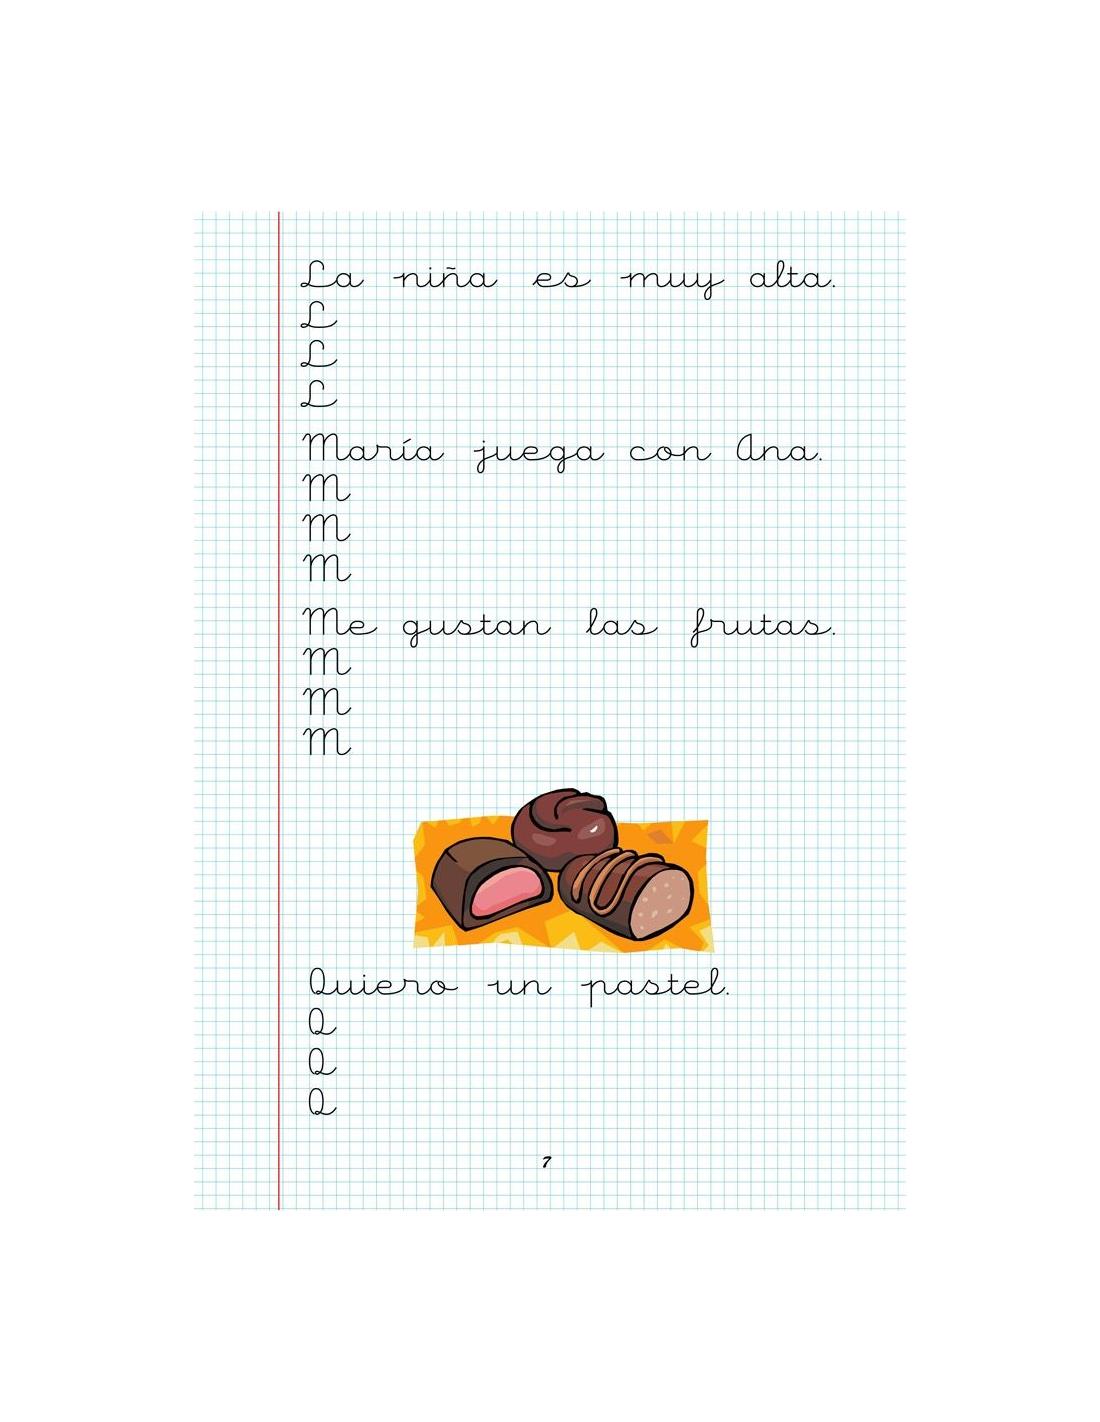 La niña es muy alta.
L
L
L
María juega con Ana.
M
M
M
Me gustan las frutas.
M
M
M
Quiero un pastel.
Q
Q
Q
7